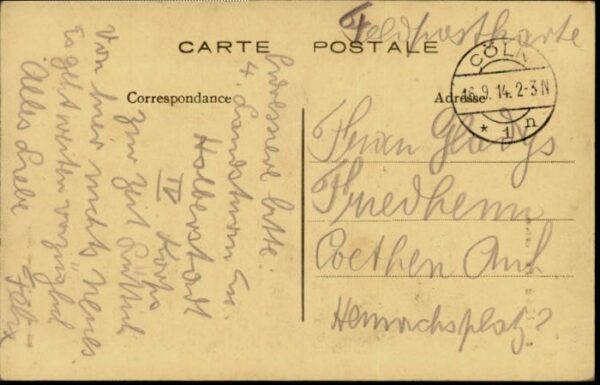 Feldpostkarte
CARTE POSTALE
CÖLN
16.9.14.2-3N
* 1 n
Correspondance
Adresse
Frau Gladys
Friedheim
Coethen Anh
Heinrichsplatz 2
Adressiere bitte:
4. Landsturm
Halberstadt
IV Korps
zur Zeit Lüttich
Von hier nichts Neues
es geht weiter vorzüglich
Alles Liebe
Felix